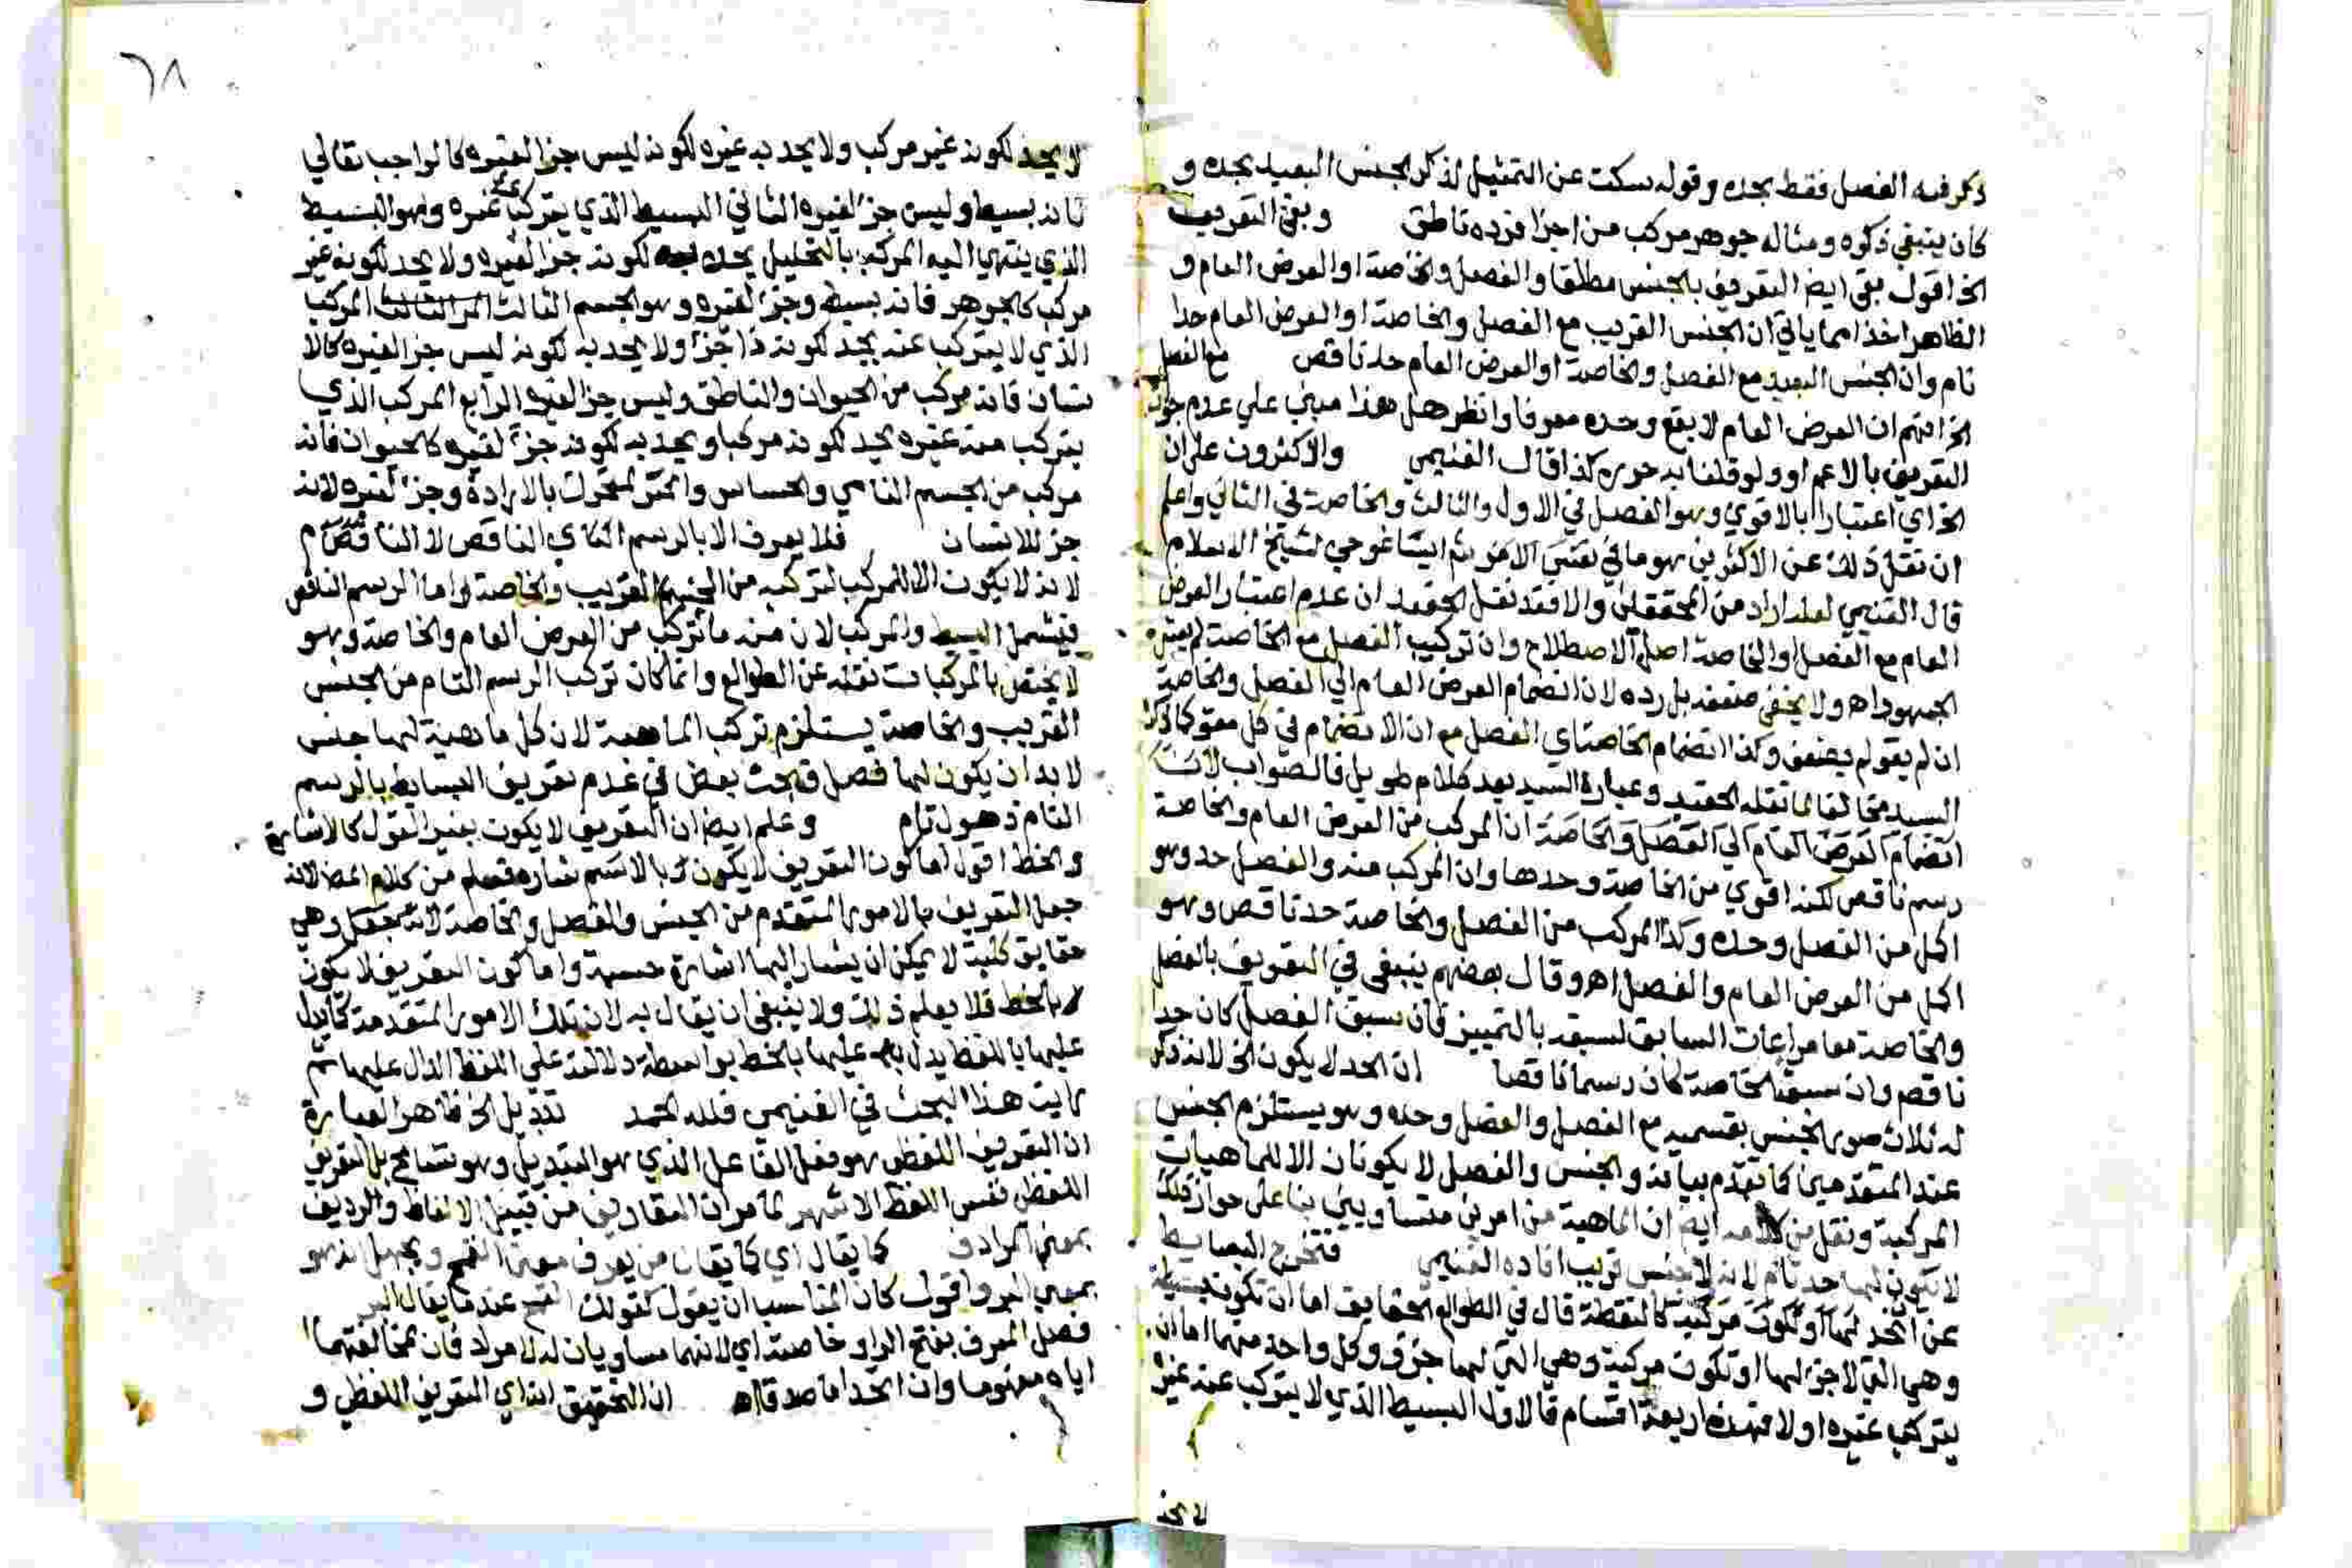 ذكر فيه الفصل فقط بحده وقوله سكت عن التمثيل لذكر الجنس البعيد بحده و
كان ينبغي ذكره ومثاله جوهر مركب من اجزا فرده ناطق وبقي التعريف
الخ اقول بقي ايض التعريف بالجنس مطلقا والفصل والخاصة او العرض العام و
الظاهر اخذا مما ياتي ان الجنس القريب مع الفصل والخاصة او العرض العام حدا
تام وان الجنس البعيد مع الفصل والخاصة او العرض العام حد ناقص مع الفصل
الخ افهم ان العرض العام لا يقع وحده معرفا وانظر هل هذا مبني علي عدم جواز
التعريف بالاعم او ولو قلنا به حوره كذا قال الغنيمي والاكثرون علي ان
الخ اي اعتبارا بالاقوي وهو الفصل في الاول والثالث والخاصة في الثاني واعلم
ان نقل ذلك عن الاكثرين هو ما في ايساغوجي لشيخ الاسلام
قال الغنيمي لعله اراد من المحققين والا فقد نقل الحفيد ان عدم اعتبار العرض
العام مع الفصل او الخاصة اصل الاصطلاح وان تركيب الفصل مع الخاصة لم يعتبره
الجمهور اه ولا يخفي ضعفه بل رده لان انضمام العرض العام الي الفصل والخاصة
ان لم يقو لم يضعف وكذا انضمام الخاصة اي الفصل مع ان الانضمام في كل مقو كما ذكره
السيد مخالفا لما نقله الحفيد وعبارة السيد بعد كلام طويل فالصواب
انضمام العرض العام الي الفصل والخاصة ان المركب من العرض العام والخاصة
رسم ناقص لكنه اقوي من الخاصة وحدها وان المركب منه والفصل حد وهو
اكمل من الفصل وحده وكذا المركب من الفصل والخاصة حد ناقص وهو
اكمل من العرض العام والفصل اه وقال بعضهم ينبغي في التعريف بالفصل
والخاصة معا مراعات السابق لسبقه بالتمييز فان سبق الفصل كان حد
ناقص وان سبقت الخاصة كان رسما ناقصا ان الحد لا يكون الخ لانه ذكر
له ثلاث صور الجنس بقسميه مع الفصل والفصل وحده وهو يستلزم الجنس
عند المتقدمين كما تقدم بيانه والجنس والفصل لا يكونان الا للماهيات
المركبة ونقل من كلامه ايض ان الماهية من امرين متساويين بنا علي جواز ذلك
لا يكون لها حد تام لانه لا جنس قريب افاده الغنيمي فتخرج البسايط
عن الحد كالنقطة قال في الطوالع الحقايق اما ان تكون بسيطة
وهي التي لا جزء لها او تكون مركبة وهي التي لها جزء وكل واحد منهما اما ان
يتركب عنه غيره او لا فهذه اربعة اقسام فالاول البسيط الذي لا يتركب عنه غيره
لا يحد
٦٨
لا يحد لكونه غير مركب ولا يحد به غيره لكونه ليس جزا لغيره كالواجب تعالي
فانه بسيط وليس جزا لغيره الثاني البسيط الذي يتركب عنه غيره وهو البسيط
الذي ينتهي اليه المركب بالتحليل يحد به لكونه جزا لغيره ولا يحد لكونه غير
مركب كالجوهر فانه بسيط وجزء لغيره وهو الجسم الثالث المركب
الذي لا يتركب عنه يحد لكونه ذا جزء ولا يحد به لكونه ليس جزا لغيره كالا
نسان فانه مركب من الحيوان والناطق وليس جزا لغيره الرابع المركب الذي
يتركب منه غيره يحد لكونه مركبا ويحد به لكونه جزء لغيره كالحيوان فانه
مركب من الجسم النامي والحساس والمتحرك بالارادة وجزء لغيره لانه
جزء للانسان فلا يعرف الا بالرسم اي الناقص لا التام
لانه لا يكون الا للمركب لتركبه من الجنس القريب والخاصة واما الرسم الناقص
فيشمل البسيط والمركب لان منه ما تركب من العرض العام والخاصة وهو
لا يختص بالمركبات نقله عن الطوالع وانما كان تركب الرسم التام من الجنس
القريب والخاصة يستلزم تركب الماهية لان كل ماهية لها جنس
لا بد ان يكون لها فصل فبحث بعض في عدم تعريف البسايط بالرسم
التام ذهول تام وعلم ايض ان التعريف لا يكون بغير القول كالاشارة
والخط اقول اما كون التعريف لا يكون بالاشارة فعلم من كلام المص لانه
جعل التعريف بالامور المتقدم من الجنس والفصل والخاصة وهي
حقايق كلية لا يمكن ان يشار اليها اشارة حسية واما كون التعريف لا يكون
بالخط فلا يعلم ذلك ولا ينبغي ان يقال به لان تلك الامور المتقدمة كما يدل
عليها باللفظ يدل عليها بالخط بواسطة دلالته علي اللفظ الدال عليها ثم
رايت هذا البحث في الغنيمي فلله الحمد تبديل الخ ظاهر العبارة
ان التعريف اللفظي هو فعل الفاعل الذي هو التبديل وهو تسامح بل التعريف
اللفظي نفس اللفظ الاشهر لما مر ان التعاريف من قبيل الالفاظ والرديف
بمعني المرادف كما يقال اي كما يقال من يعرف معني القمح ويجهل انه هو
بمعني البر واقول كان المناسب ان يقول كقولك القمح عند ما يقال البر
فصل المعرف بفتح الرا وخاصته اي لانهما مساويان له لا مراد فان لمخالفتهما
اياه مفهوما وان اتحدا ما صدقا اه ان التحقيق انه اي التعريف اللفظي و